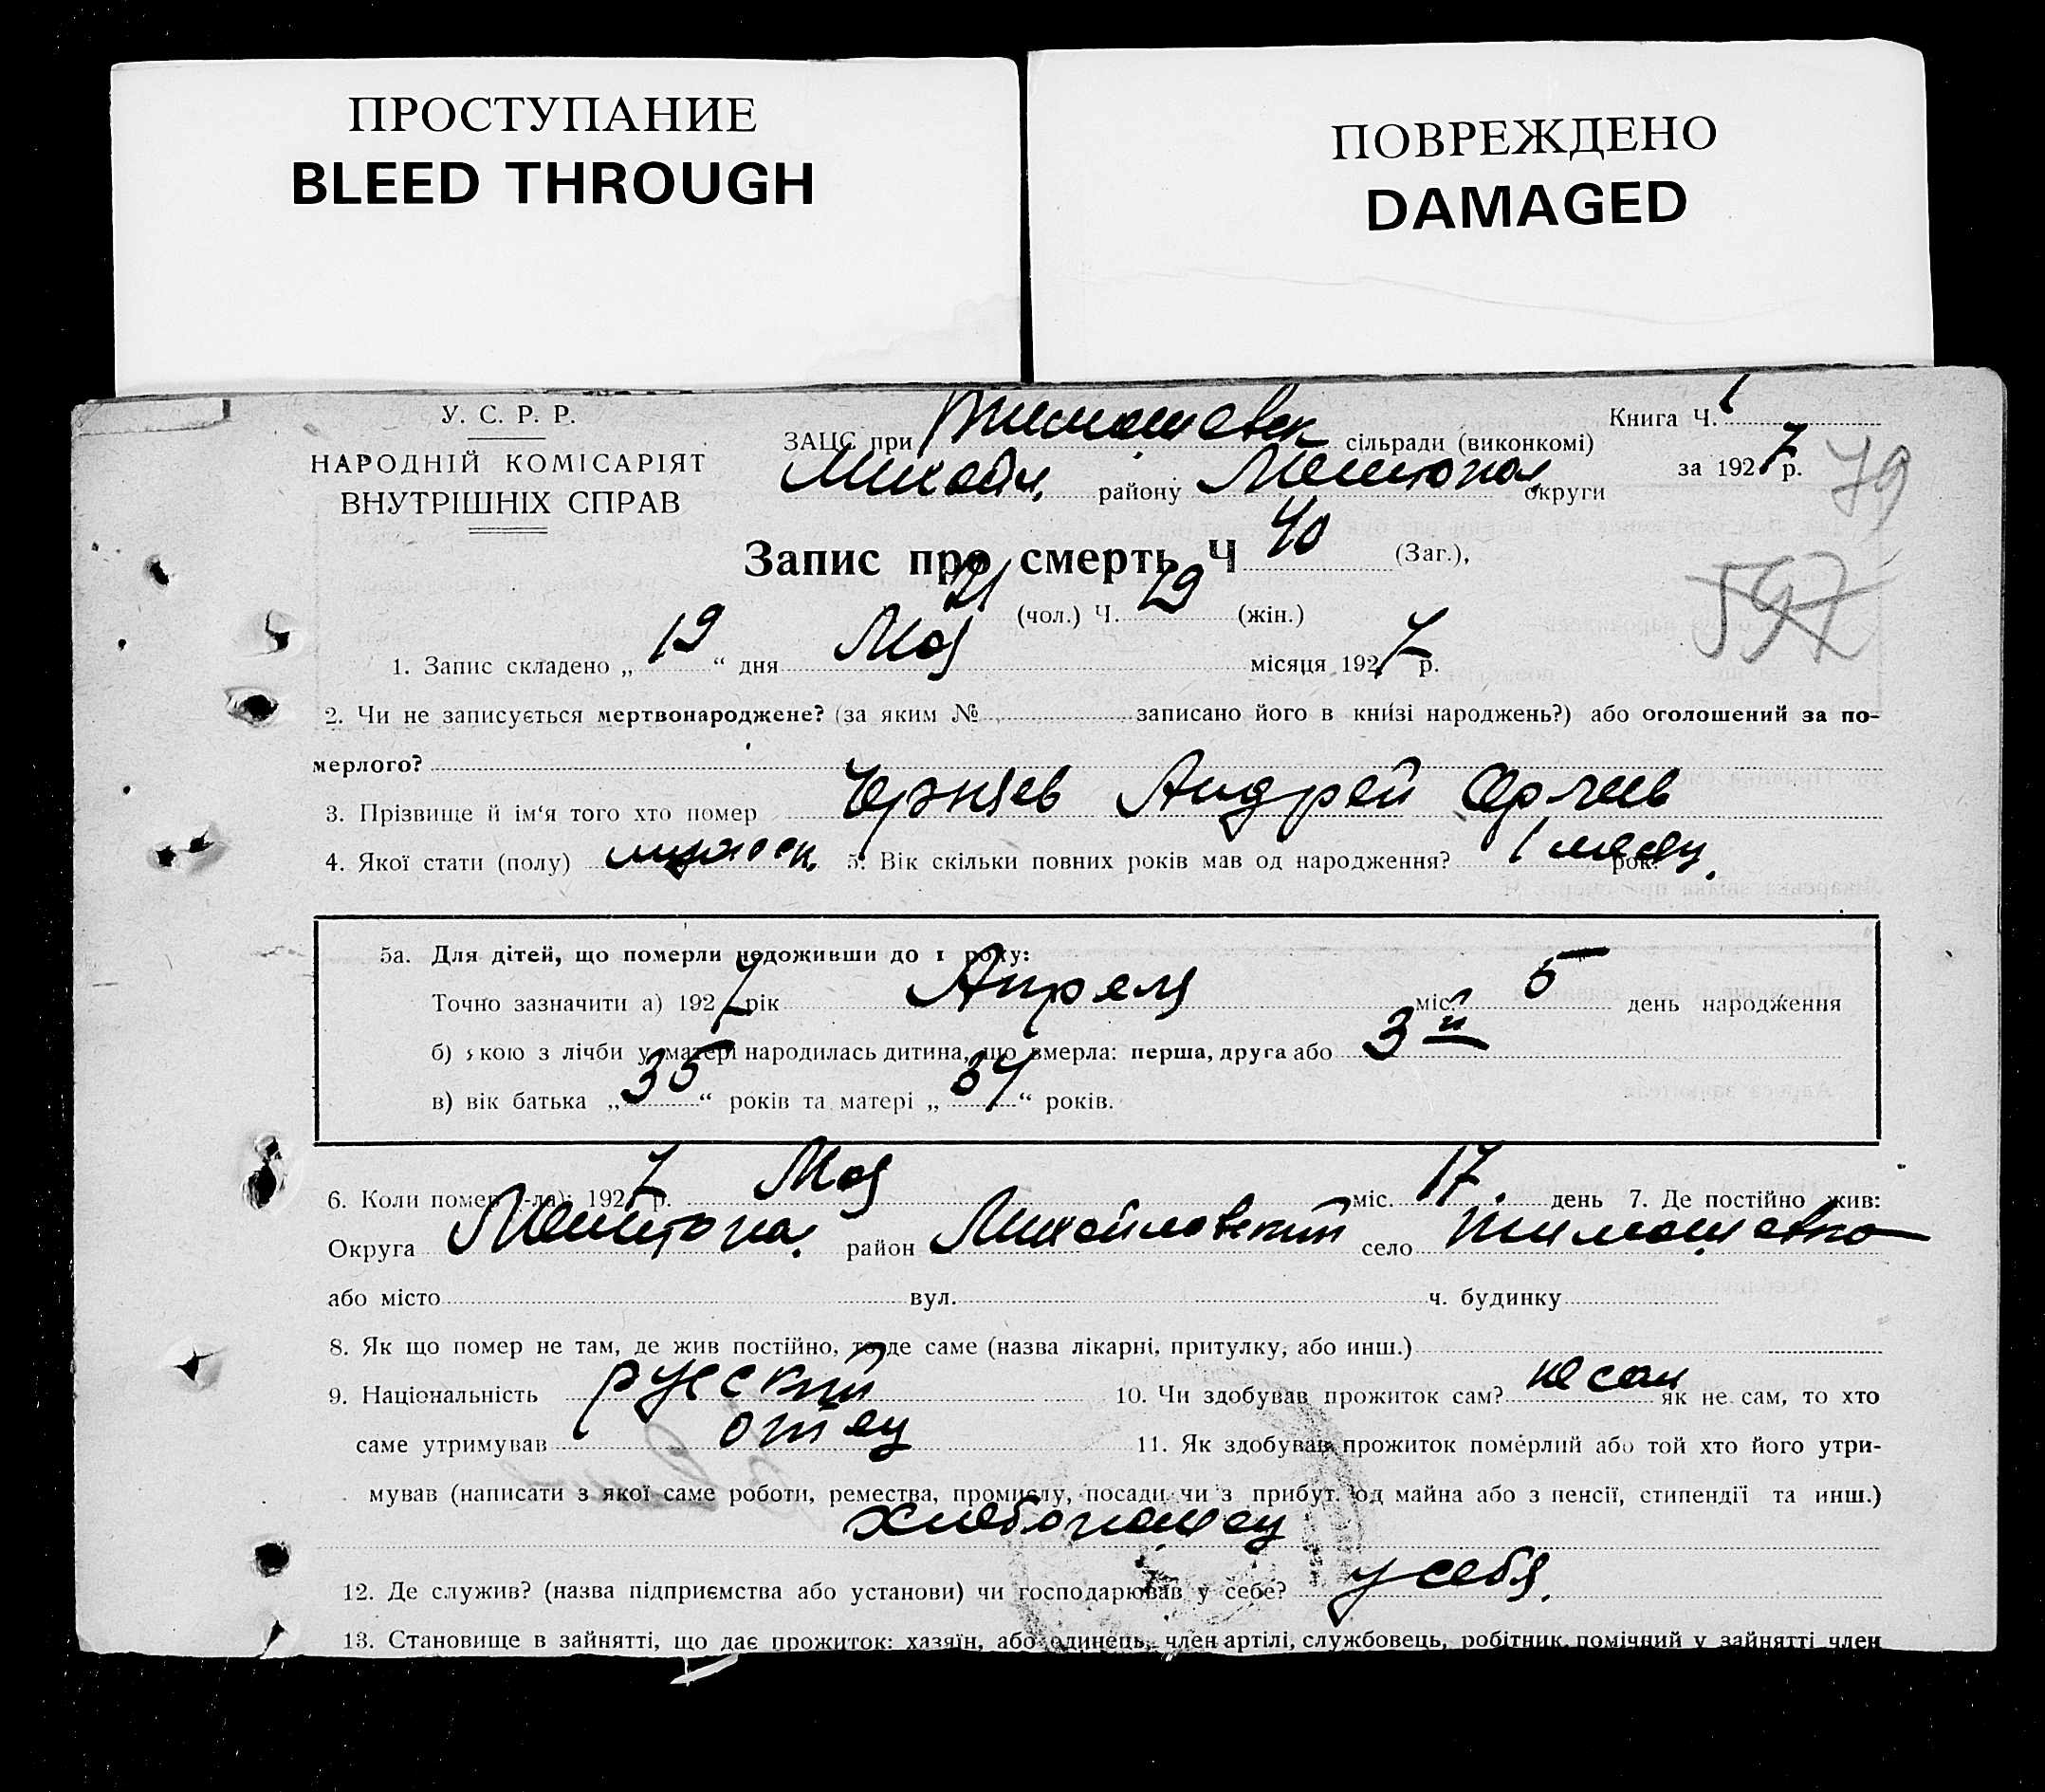 ПРОСТУПАНИЕ
BLEED THROUGH
ПОВРЕЖДЕНО
DAMAGED
У. С. Р. Р.
НАРОДНІЙ КОМІСАРІЯТ
ВНУТРІШНІХ СПРАВ
Книга Ч. 1
ЗАЦС при Тимошевск сільради (виконкомі)
за 1927 р.
Михайл. району Мелитопол. округи
79
597
Запис про смерть Ч 40 (Заг.),
21 (чол.) Ч. 19 (жін.)
1. Запис складено „19“ дня Мая місяця 1927 р.
2. Чи не записується мертвонароджене? (за яким № записано його в книзі народжень?) або оголошений за по-
мерлого?
3. Прізвище й ім‘я того хто помер Андрей
4. Якої стати (полу) мужеск. 5. Вік скільки повних років мав од народження? 1 месяц. рок.
5а. Для дітей, що померли недоживши до 1 року:
Точно зазначити а) 1927 рік Апреля міс. 5 день народження
б) якою з лічби у матері народилась дитина, що вмерла: перша, друга або 3й
в) вік батька „35“ років та матері „34“ років.
6. Коли помер (-ла): 1927 р. Мая міс. 17. день 7. Де постійно жив:
Округа Мелитопол. район Михайловский село Тимошевка
або місто вул. ч. будинку
8. Як що помер не там, де жив постійно, то де саме (назва лікарні, притулку, або инш.)
9. Національність русский 10. Чи здобував прожиток сам? не сам як не сам, то хто
саме утримував отец 11. Як здобував прожиток померлий або той хто його утри-
мував (написати з якої саме роботи, ремества, промислу, посади чи з прибут. од майна або з пенсії, стипендії та инш.)
хлебопашец
12. Де служив? (назва підприємства або установи) чи господарював у себе? у себя.
13. Становище в зайнятті, що дає прожиток: хазяїн, або одинець, член артілі, службовець, робітник, помічний у зайнятті член